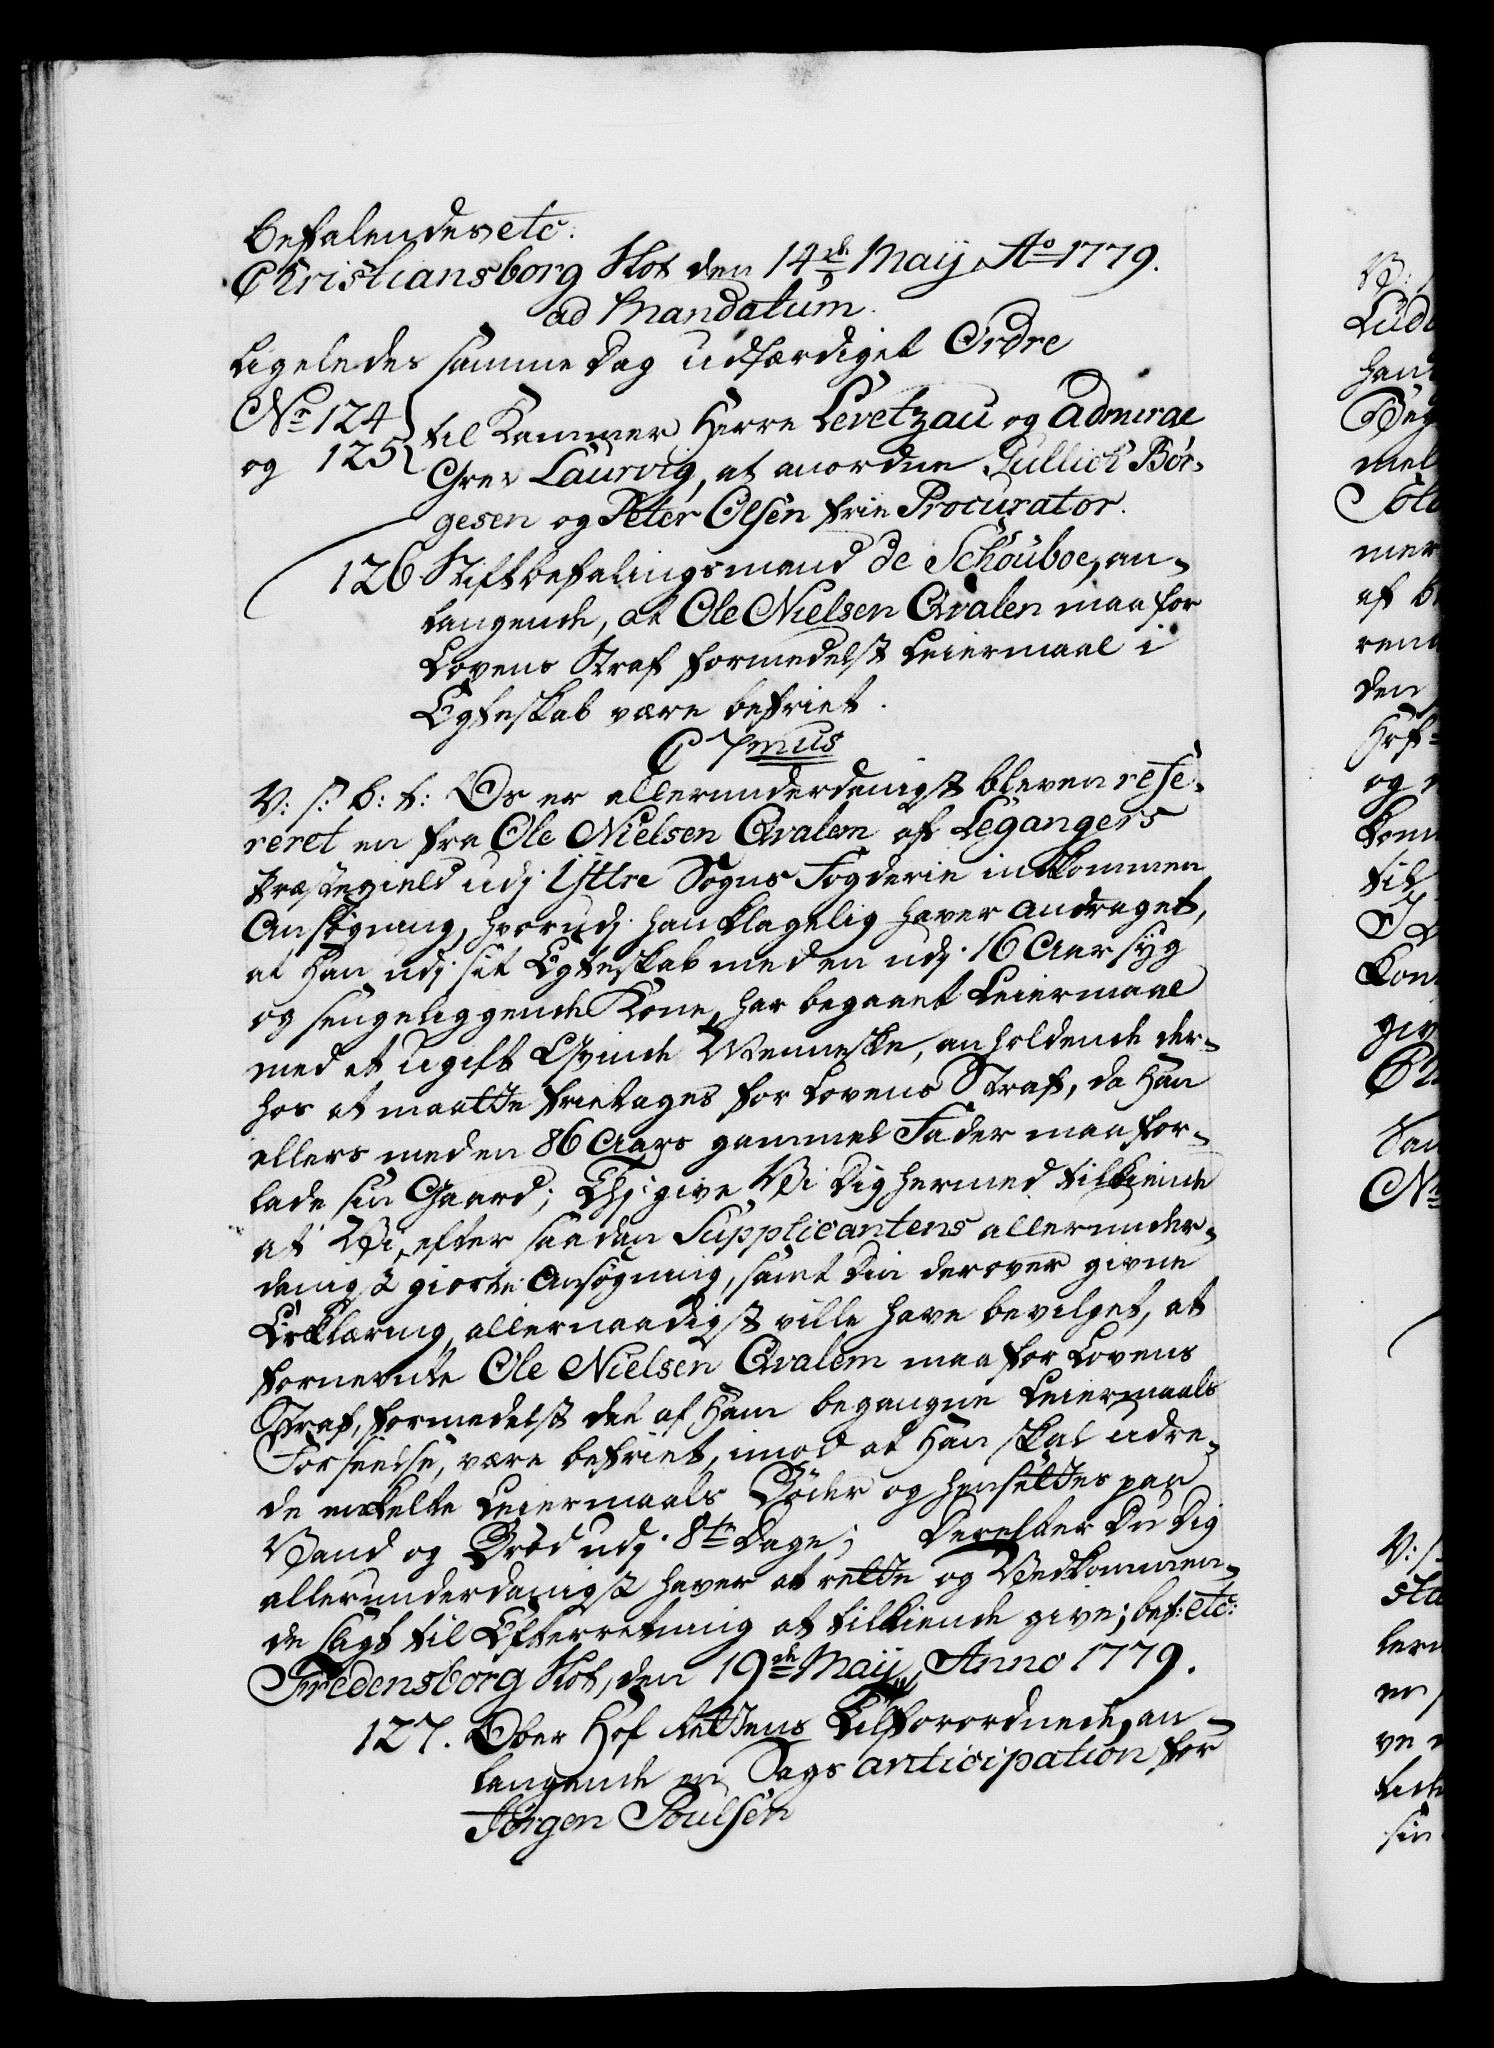 befalendes etc:
Christiansborg Slot den 14de Maij Ao 1779.
ad Mandatum.
Ligeledes samme Dag udfærdiget Ordre
No 124
og 125 til Kammer Herre Levetzau og Admiral
Grev Laurvig, at anordne Gullich Bör-
gesen og Peter Olsen frie Procurator.
126 Stiftbefalingsmand de Schouboe, an-
langende, at Ole Nielsen Qvalen maa for
Lovens Straf formedelst Leiermaal i
Egteskab være befriet.
C 7mus
V: S: B: t: Os er allerunderdanigst bleven refe-
reret en fra Ole Nielsen Qvalem af Legangers
Præstegield udj Yttre Sogns Fogderie indkommen
Ansøgning, hvorudj han klagelig haver andraget,
at han udj sit Egteskab med en udj 16 Aar syg
og sengeliggende Kone, har begaaet Leiermaal
med et ugift Qvinde Menneske, anholdende der-
hos at maatte fritages for Lovens Straf, da han
ellers med en 86 Aars gammel Fader maa for-
lade sin Gaard; Thj give Vi Dig hermed tilkiende
at Vi, efter saadan Supplicantens allerunder-
danigst giorte Ansøgning, samt Din derover givne
Erklæring, allernaadigst ville have bevilget, at
fornevnte Ole Nielsen Qvalem maa for Lovens
Straf, formedelst det af ham begangne Leiermaals
Forseelse, være befriet, imod at han skal udre-
de enkelte Leiermaals Bøder og hensættes paa
Vand og Brød udj 8te Dage; Derefter Du Dig
allerunderdanigst haver at rette og Vedkommen-
de sligt til Efterretning at tilkiende give; bef: etc:
Fredensborg Slot, den 19de Maij Anno 1779.
127. Ober Hof Rettens Tilforordnede, an-
langende en Sags anticipation for
Jörgen Poulsen